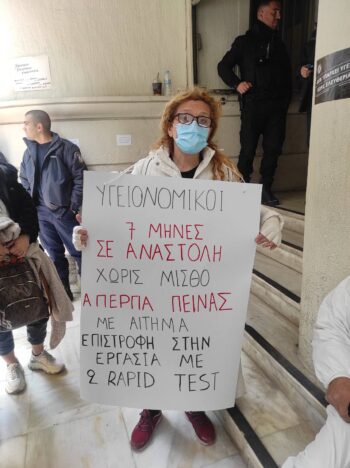 ΥΓΕΙΟΝΟΜΙΚΟΙ
7 ΜΗΝΕΣ
ΣΕ ΑΝΑΣΤΟΛΗ
ΧΩΡΙΣ ΜΙΣΘΟ
ΑΠΕΡΓΙΑ ΠΕΙΝΑΣ
ΜΕ ΑΙΤΗΜΑ
ΕΠΙΣΤΡΟΦΗ ΣΤΗΝ
ΕΡΓΑΣΙΑ ΜΕ
2 RAPID TEST